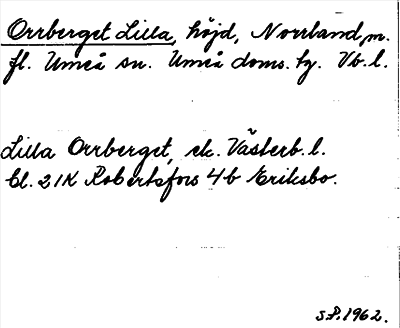 Orrberget Lilla, höjd, Norrland, m.
fl. Umeå sn. Umeå doms. tg. Vb. l.
Lilla Orrberget, ek. Västerb. l.
bl. 21K Robertsfors 4b Eriksbo.
S.P. 1962.